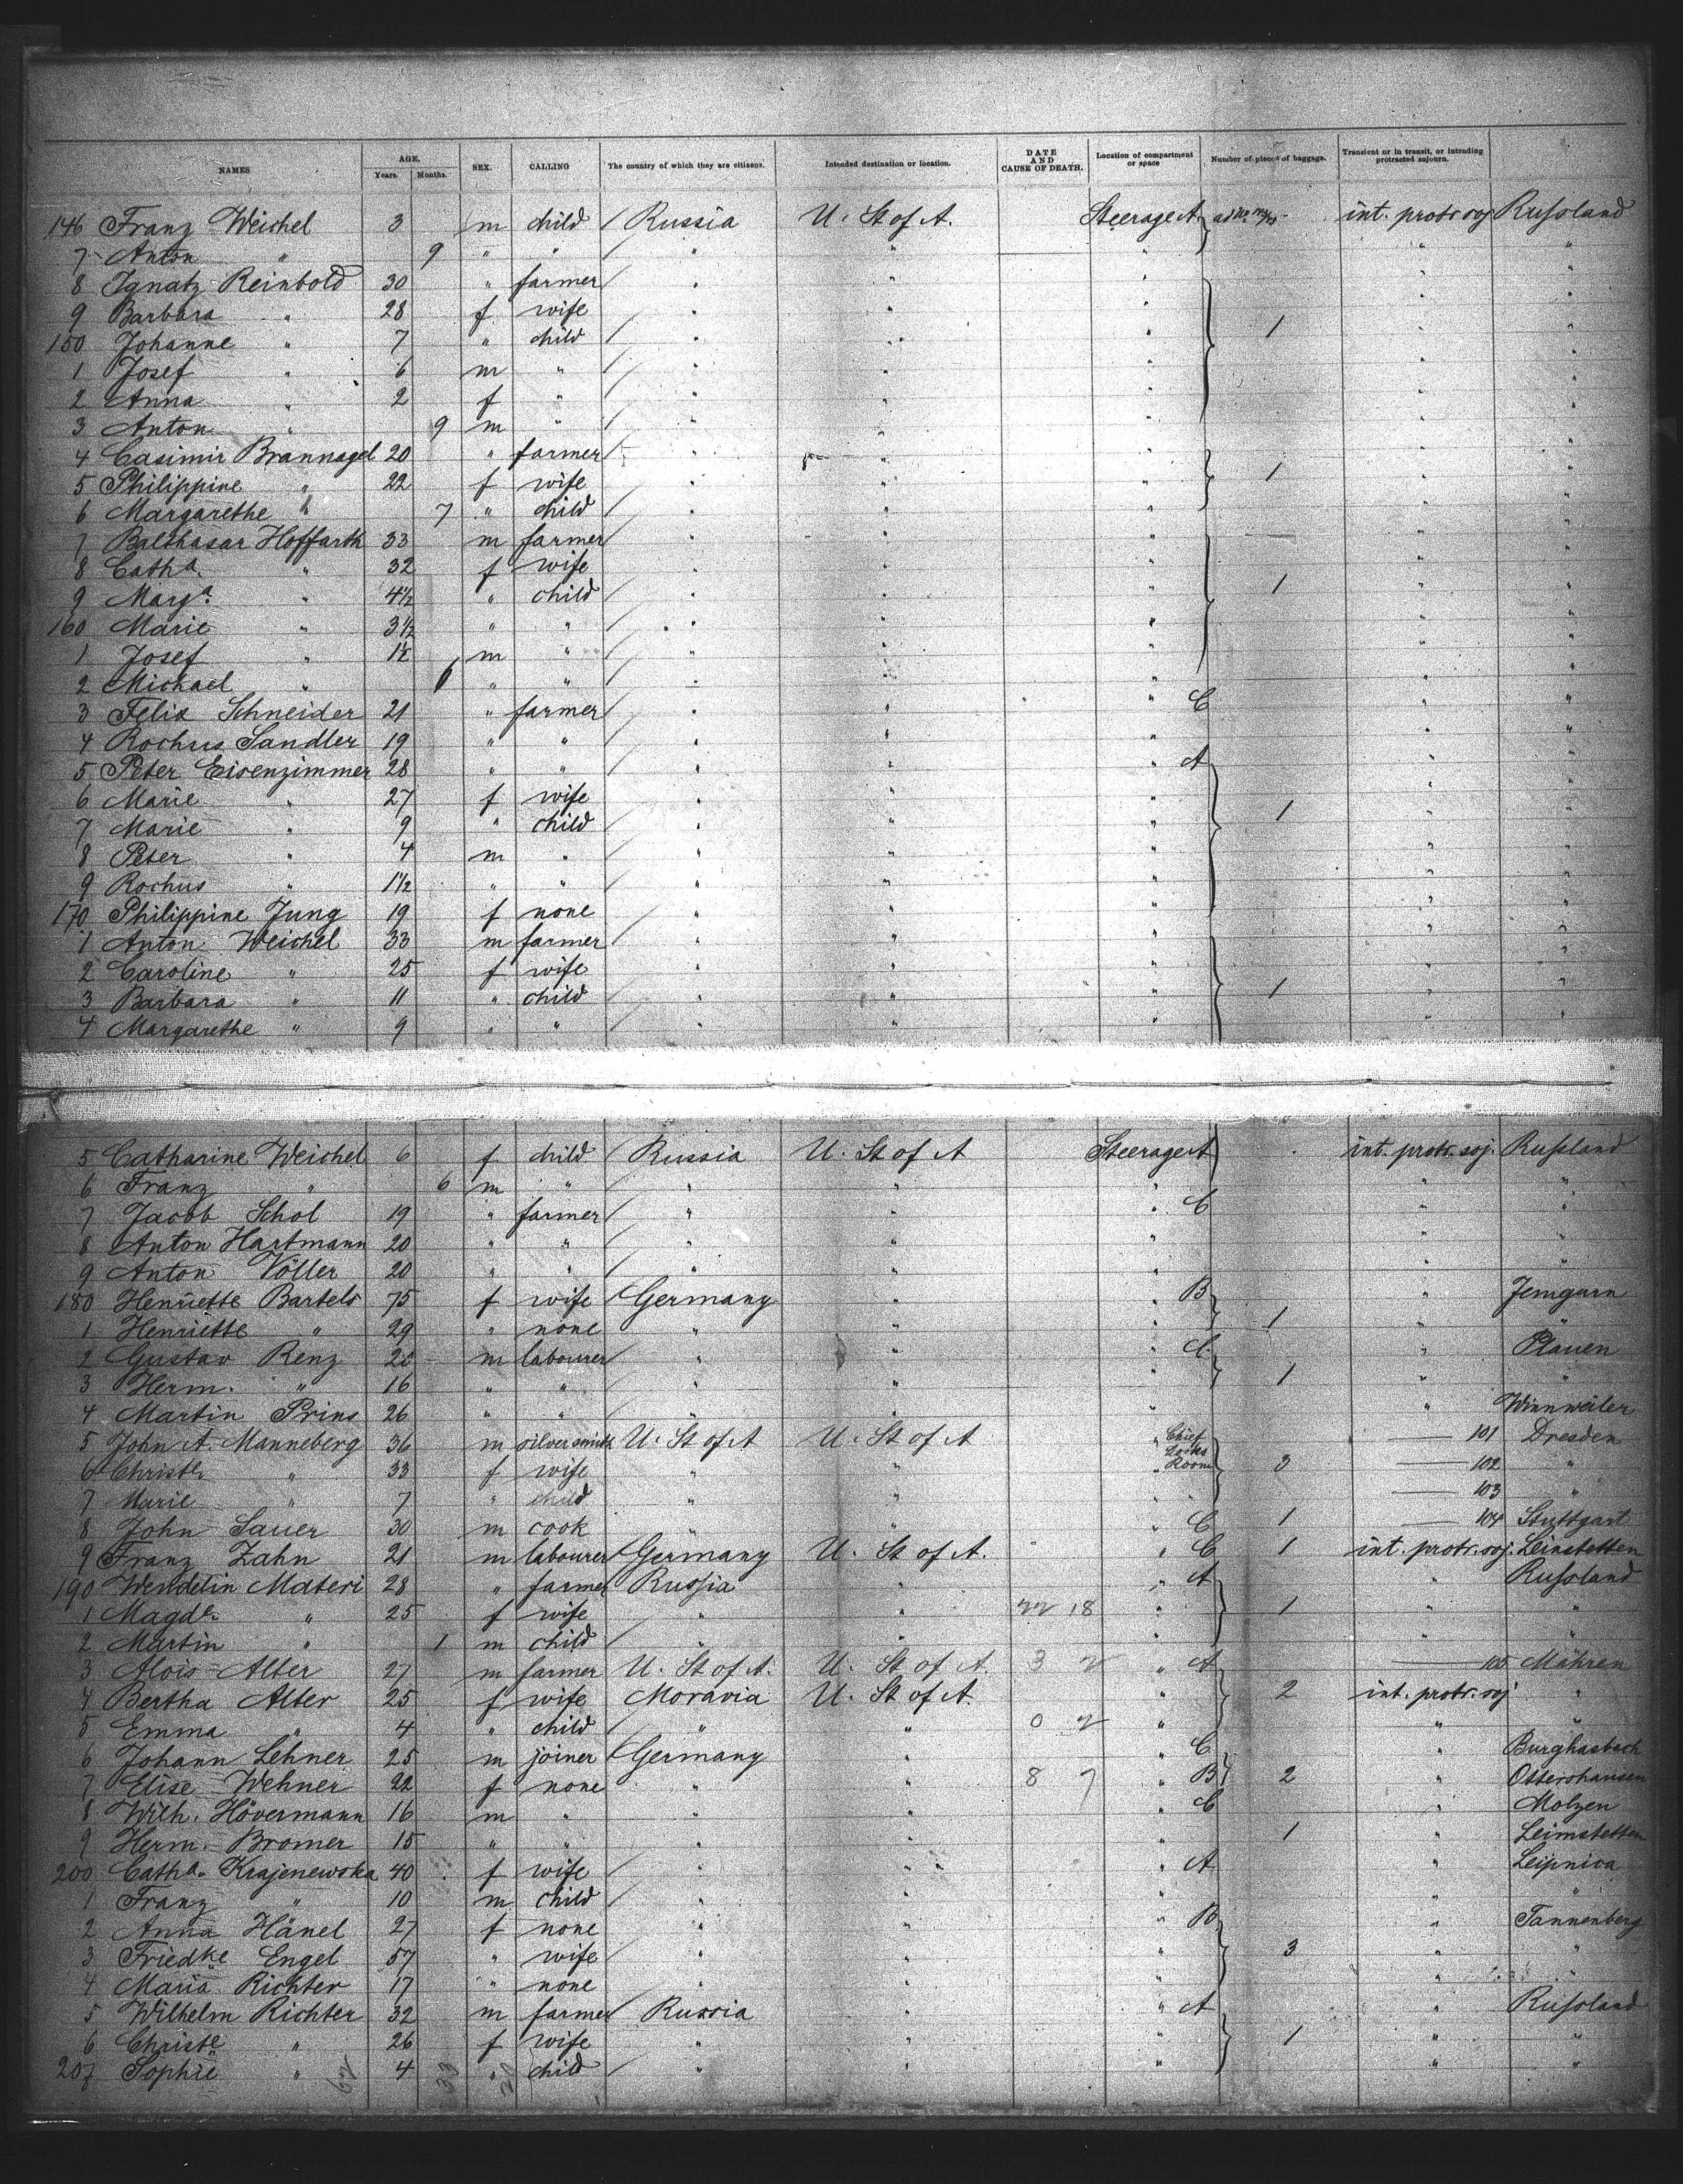 NAMES AGE. Years. Months. SEX. CALLING The country of which they are citizens. Intended destination or location. DATE AND CAUSE OF DEATH. Location of compartment or space Number of pieces of baggage. Transient or in transit, or intending protracted sojourn.
146 Franz Weichel 3 m child Russia U. St of A. Steerage A int. protr. soj Russland
7 Anton " 9 " " " " " " "
8 Ignatz Reinbold 30 " farmer " " " " "
9 Barbara " 28 f wife " " " 1 " "
150 Johanne " 7 " child " " " " "
1 Josef " 6 m " " " " " "
2 Anna " 2 f " " " " " "
3 Anton " 9 m " " " " " "
4 Casimir Brannagel 20 " farmer " " " " "
5 Philippine " 22 f wife " " " 1 " "
6 Margarethe " 7 " child " " " " "
7 Balthasar Hoffarth 33 m farmer " " " " "
8 Catha. " 32 f wife " " " " "
9 Marga. " 4½ " child " " " 1 " "
160 Marie " 3½ " " " " " " "
1 Josef " 1½ m " " " " " "
2 Michael " 6 " " " " " " "
3 Felix Schneider 21 " farmer " " " C " "
4 Rochus Sandler 19 " " " " " " "
5 Peter Eisenzimmer 28 " " " " " A " "
6 Marie " 27 f wife " " " 1 " "
7 Marie " 9 " child " " " " "
8 Peter " 4 m " " " " " "
9 Rochus " 1½ " " " " " " "
170 Philippine Jung 19 f none " " " " "
1 Anton Weichel 33 m farmer " " " " "
2 Caroline " 25 f wife " " " " "
3 Barbara " 11 " child " " " 1 " "
4 Margarethe " 9 " " " " " " "
5 Catharine Weichel 6 f child Russia U. St of A Steerage A int. protr. soj. Russland
6 Franz " 6 m " " " " " "
7 Jacob Schol 19 " farmer " " " C " "
8 Anton Hartmann 20 " " " " " " "
9 Anton Völler 20 " " " " " " "
180 Henriette Bartels 75 f wife Germany " " B " Jemgum
1 Henriette " 29 " none " " " 1 " "
2 Gustav Renz m labourer " " " C " Plauen
3 Herm. " 16 " " " " " 1 " "
4 Martin Prins 26 " " " " " " Winnweiler
5 John A. Manneberg 36 m silversmith U. St of A U. St of A " Chief Cooks Room 101 Dresden
6 Christe. " 33 f wife " " " 3 102 "
7 Marie " 7 " child " " " 103 "
8 John Sauer 30 m cook " " " C 1 104 Stuttgart
9 Franz Zahn 21 m labourer Germany U. St of A. " C 1 int. protr. soj. Leinstetten
190 Wendelin Materi 28 " farmer Russia " " A " Russland
1 Magde. " 25 f wife " " 22 18 " 1 " "
2 Martin " 1 m child " " " " "
3 Alois Alter 27 m farmer U. St of A. U. St of A. 3 2 " A 105 Mähren
4 Bertha Alter 25 f wife Moravia U. St of A. " 2 int. protr. soj "
5 Emma " 4 " child " " 0 2 " " "
6 Johann Lehner 25 m joiner Germany " C " Burghasbach
7 Elise Wehner 22 f none " " 8 7 " B 2 " Ottershausen
8 Wilh. Hövermann 16 m " " " " C " Molzen
9 Herm. Bromer 15 " " " " " 1 " Leimstetten
200 Catha. Krajenewska 40 f wife " " " A " Leipnica
1 Franz " 10 m child " " " " "
2 Anna Hänel 27 f none " " " B " Tannenberg
3 Friedke Engel 57 " wife " " " 3 " "
4 Maria Richter 17 " none " " " " "
5 Wilhelm Richter 32 m farmer Russia " " A " Russland
6 Christe " 26 f wife " " " 1 " "
207 Sophie " 4 " child " " " " "